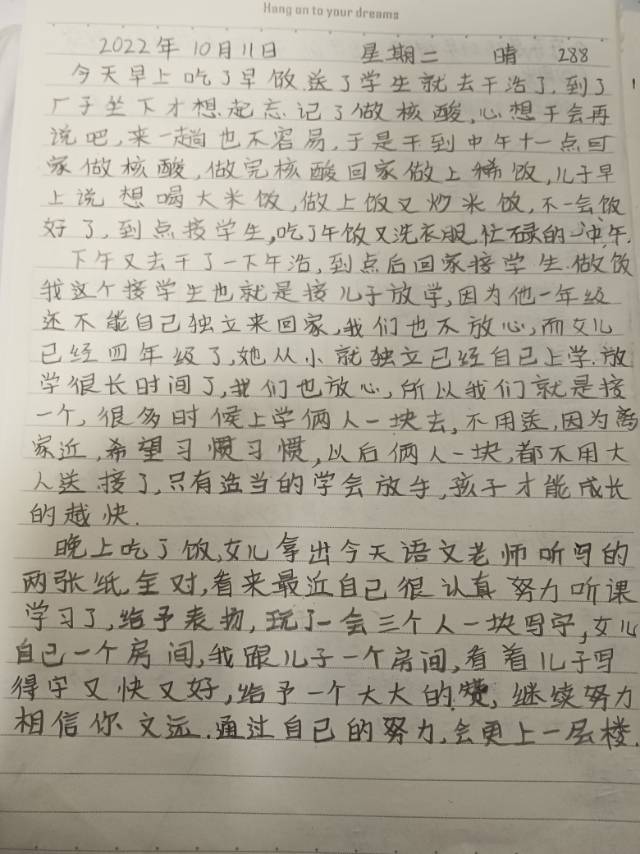 Hang on to your dreams
2022年10月11日 星期二 晴 288
今天早上吃了早饭送了学生就去干活了,到了
厂子坐下才想起忘记了做核酸,心想干会再
说吧,来一趟也不容易,于是干到中午十一点回
家做核酸,做完核酸回家做上稀饭,儿子早
上说想喝大米饭,做上饭又炒米饭,不一会饭
好了,到点接学生,吃了午饭又洗衣服忙碌的一中午.
下午又去干了一下午活,到点后回家接学生.做饭
我这个接学生也就是接儿子放学,因为他一年级
还不能自己独立来回家,我们也不放心,而女儿
已经四年级了,她从小就独立已经自己上学.放
学很长时间了,我们也放心,所以我们就是接
一个,很多时候上学俩人一块去,不用送,因为离
家近,希望习惯习惯,以后俩人一块,都不用大
人送接了,只有适当的学会放手,孩子才能成长
的越快.
晚上吃了饭,女儿拿出今天语文老师听写的
两张纸,全对,看来最近自己很认真努力听课
学习了,给予表扬,玩了一会三个人一块写字,女儿
自己一个房间,我跟儿子一个房间,看着儿子写
得字又快又好,给予一个大大的赞,继续努力
相信你文远.通过自己的努力,会更上一层楼.